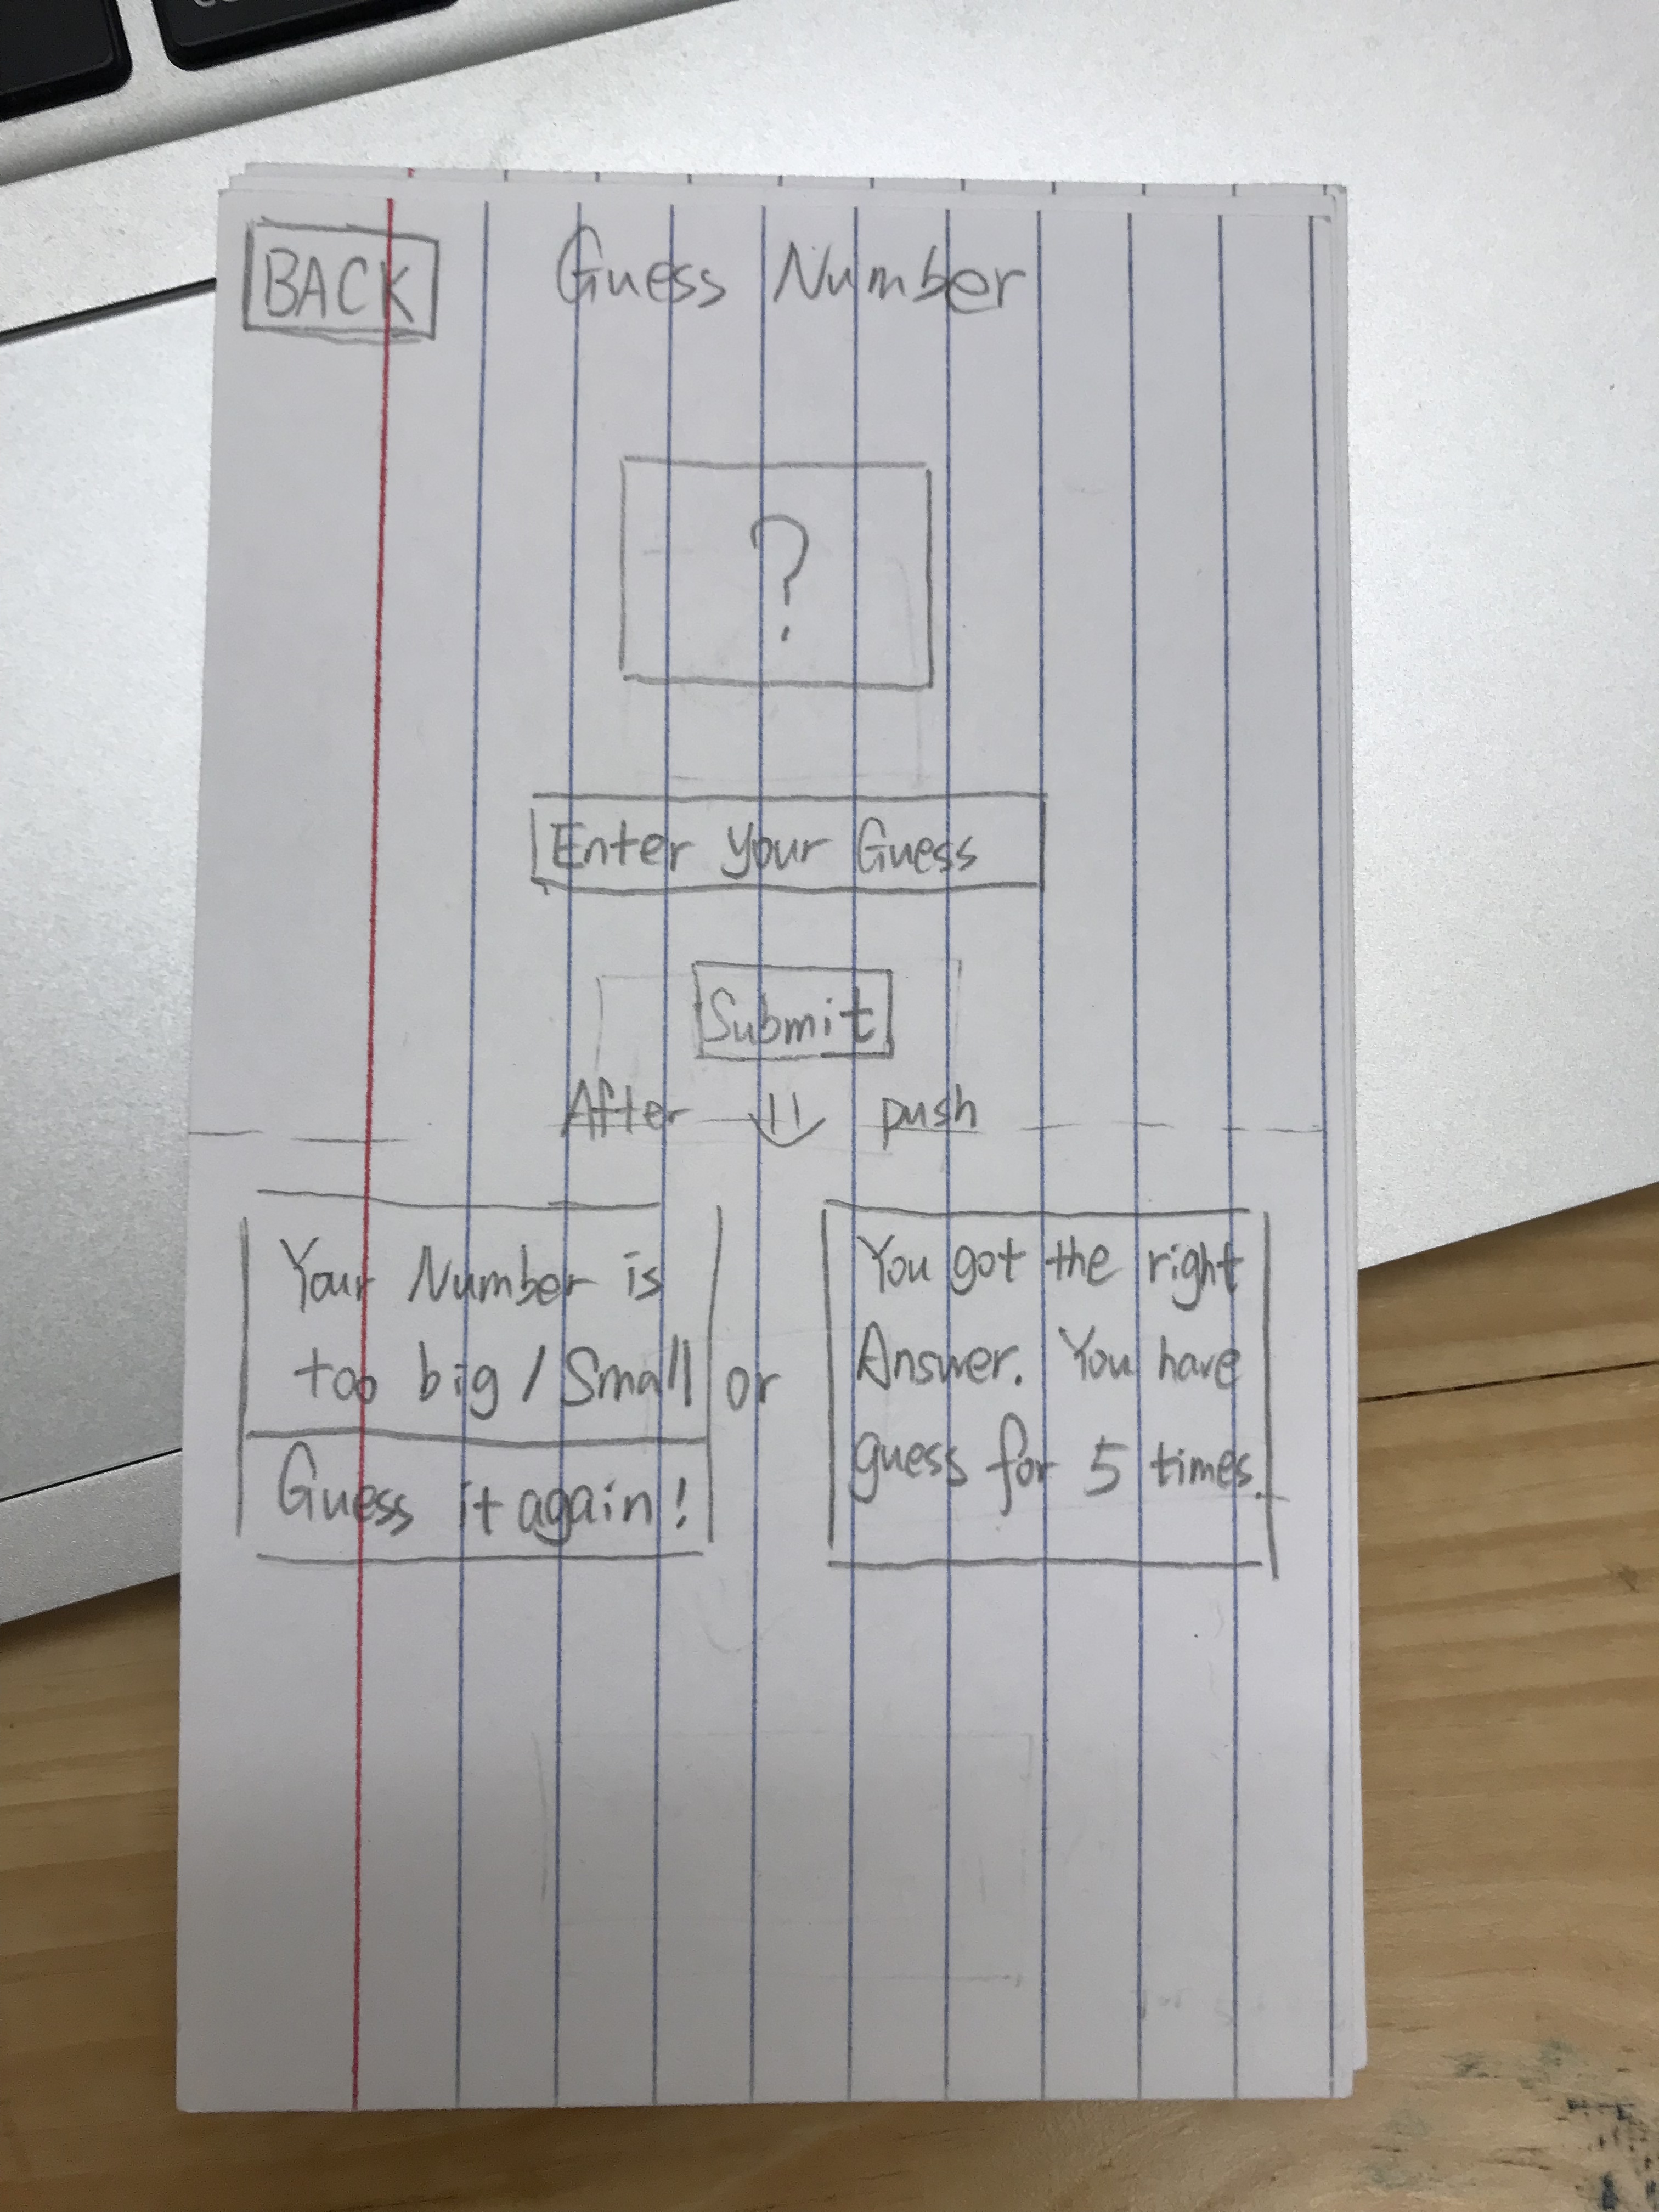 BACK
Guess Number
?
Enter your Guess
Submit
After push
Your Number is
too big / Small
Guess it again!
or
You got the right
Answer. You have
guess for 5 times.